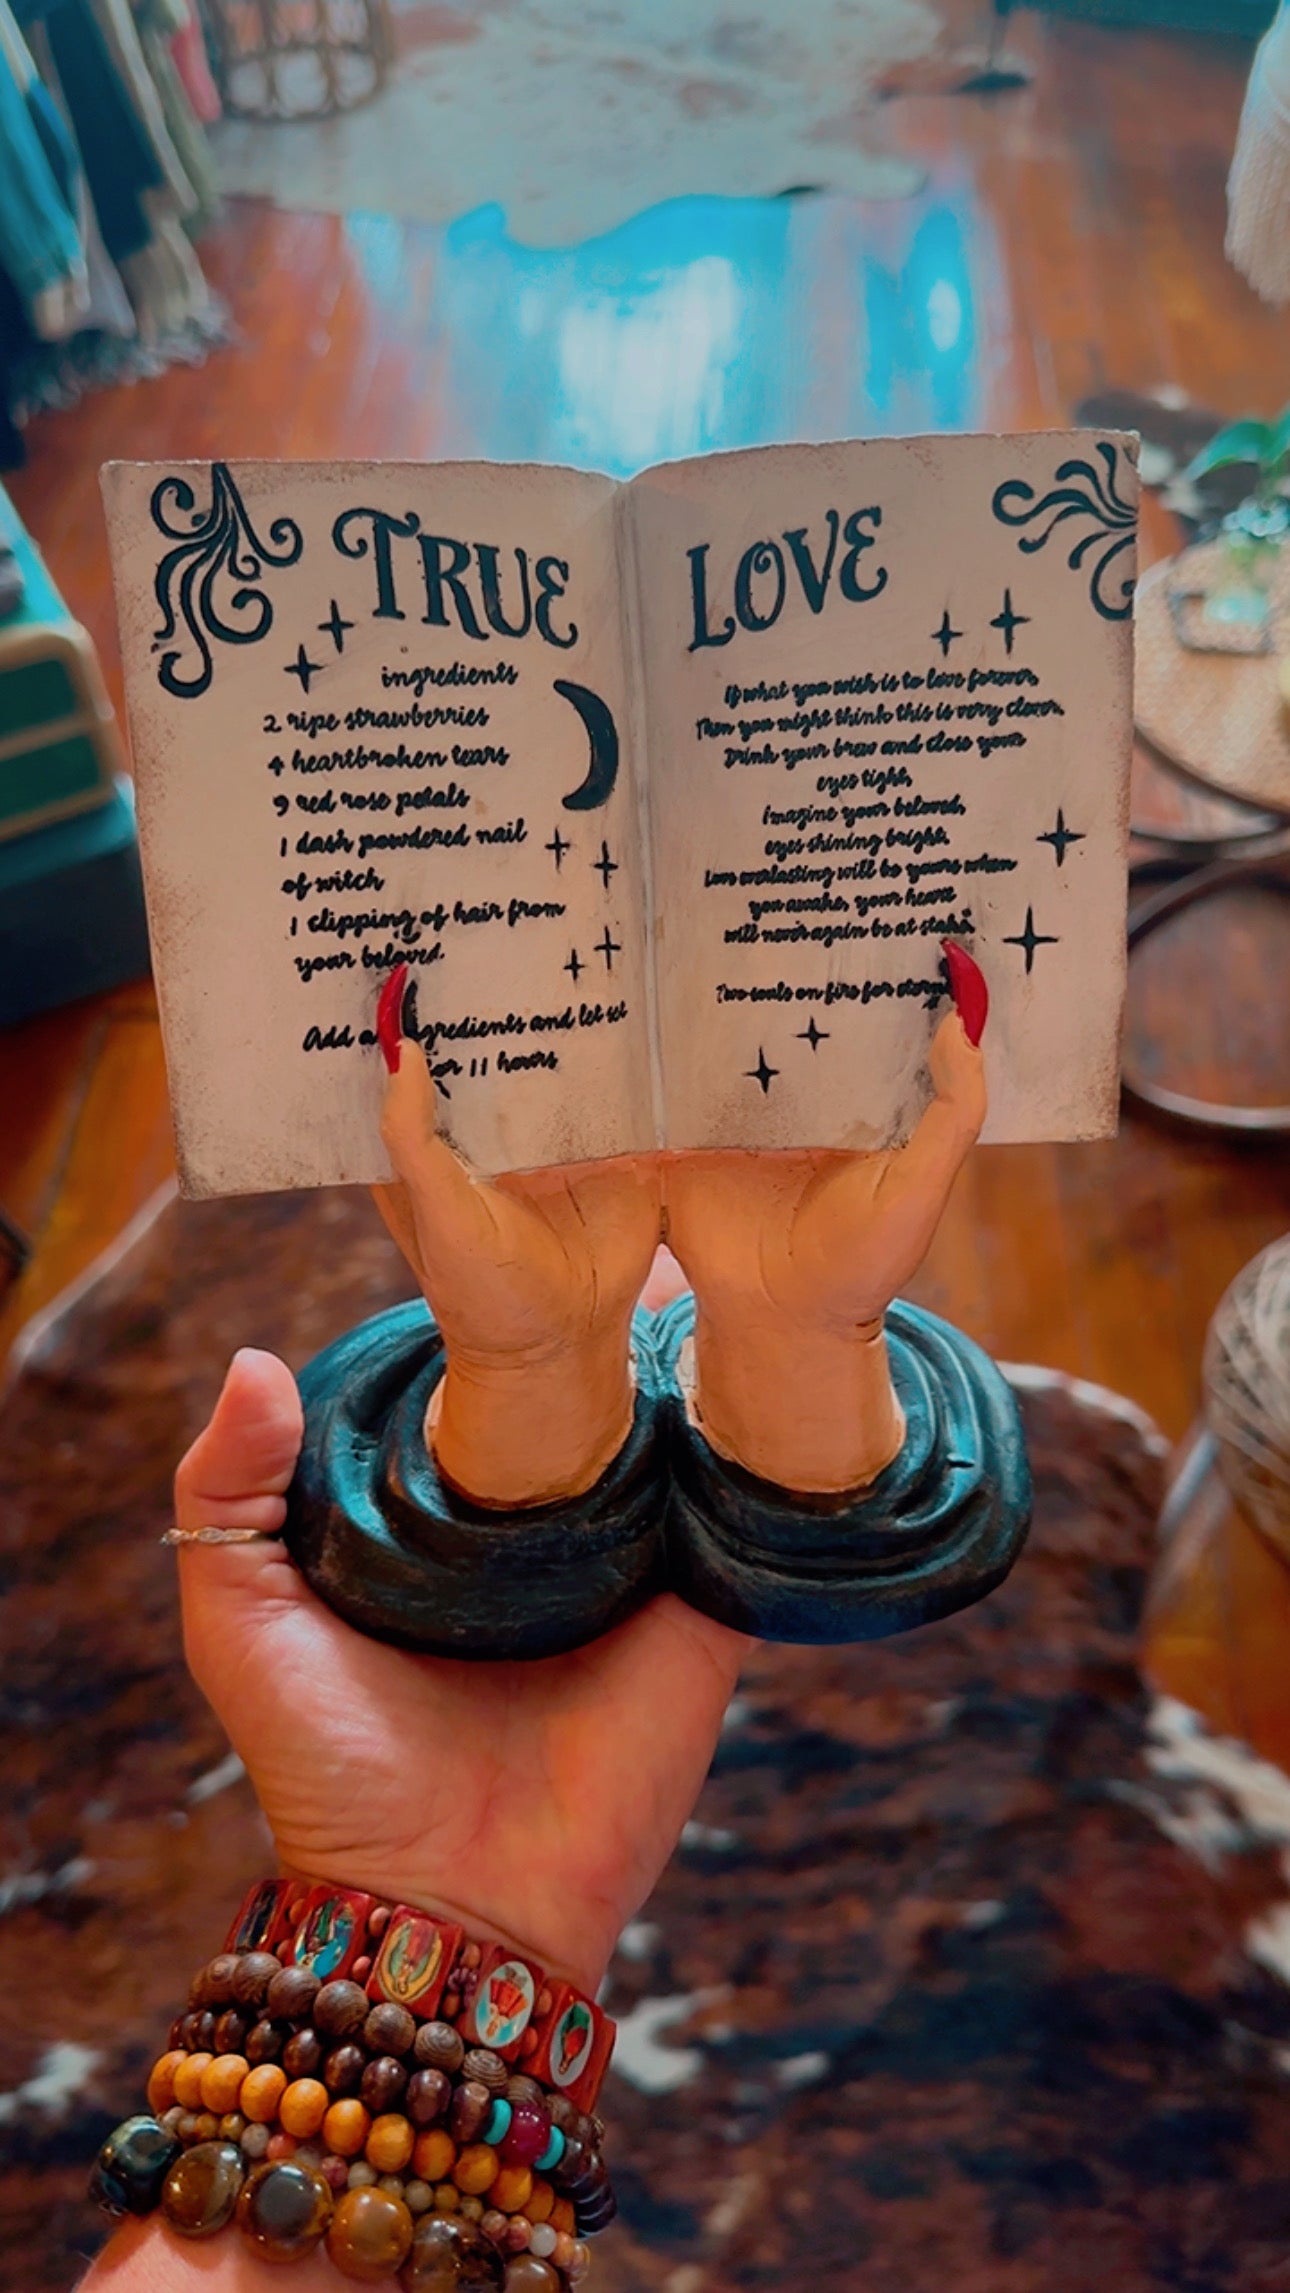 TRUE
ingredients
2 ripe strawberries
4 heartbroken tears
9 red rose petals
1 dash powdered nail
of witch
1 clipping of hair from
your beloved.
Add a ingredients and let set
for 11 hours
LOVE
If what you wish is to love forever,
Then you might think this is very clever.
Drink your brew and close your
eyes tight,
imagine your beloved,
eyes shining bright.
Love everlasting will be yours when
you awake, your heart
will never again be at stake.
Two souls on fire for